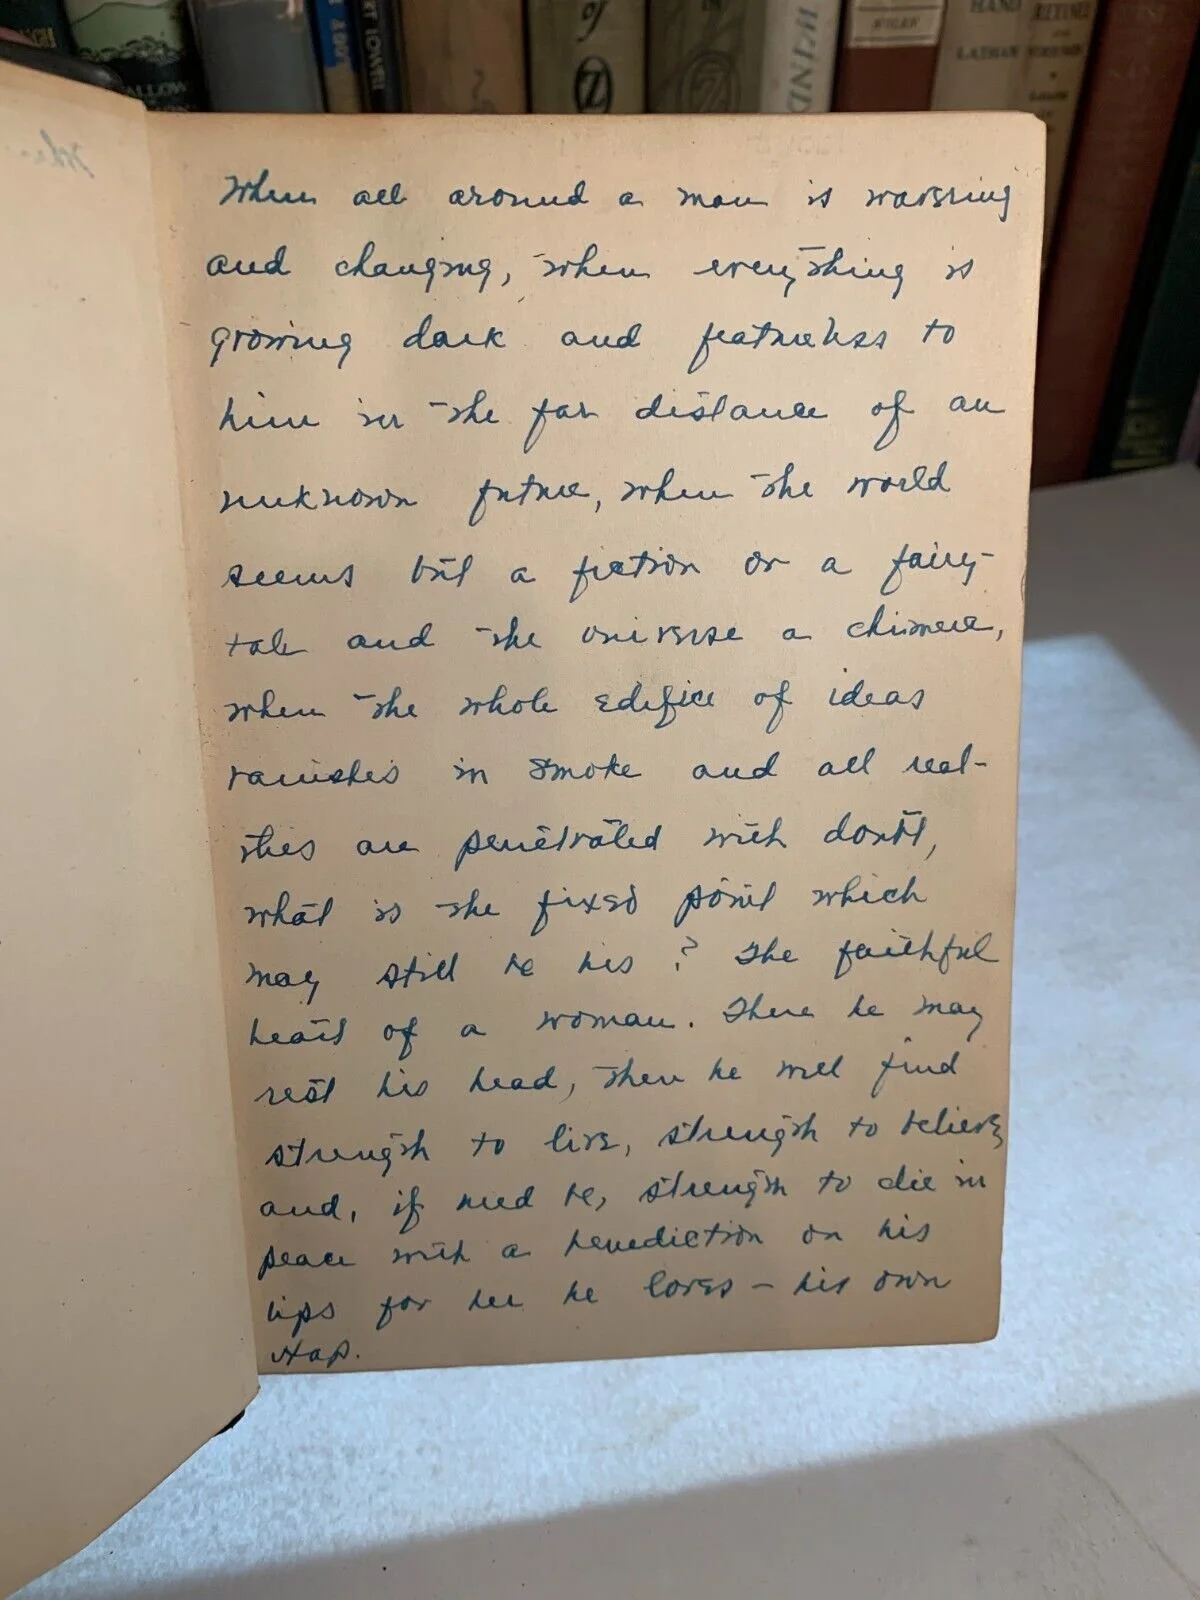 of
Z
IN
WIND
HAND
LATHAM
LOST
LOSSER
When all around a man is wavering
and changing, when everything is
growing dark and featureless to
him in the far distance of an
unknown future, when the world
seems but a fiction or a fairy-
tale and the universe a chimera,
when the whole edifice of ideas
vanishes in smoke and all real-
ities are penetrated with doubt,
what is the fixed point which
may still be his? The faithful
heart of a woman. There he may
rest his head, then he will find
strength to live, strength to believe,
and, if need be, strength to die in
peace with a benediction on his
lips for her he loves - his own
Hap.